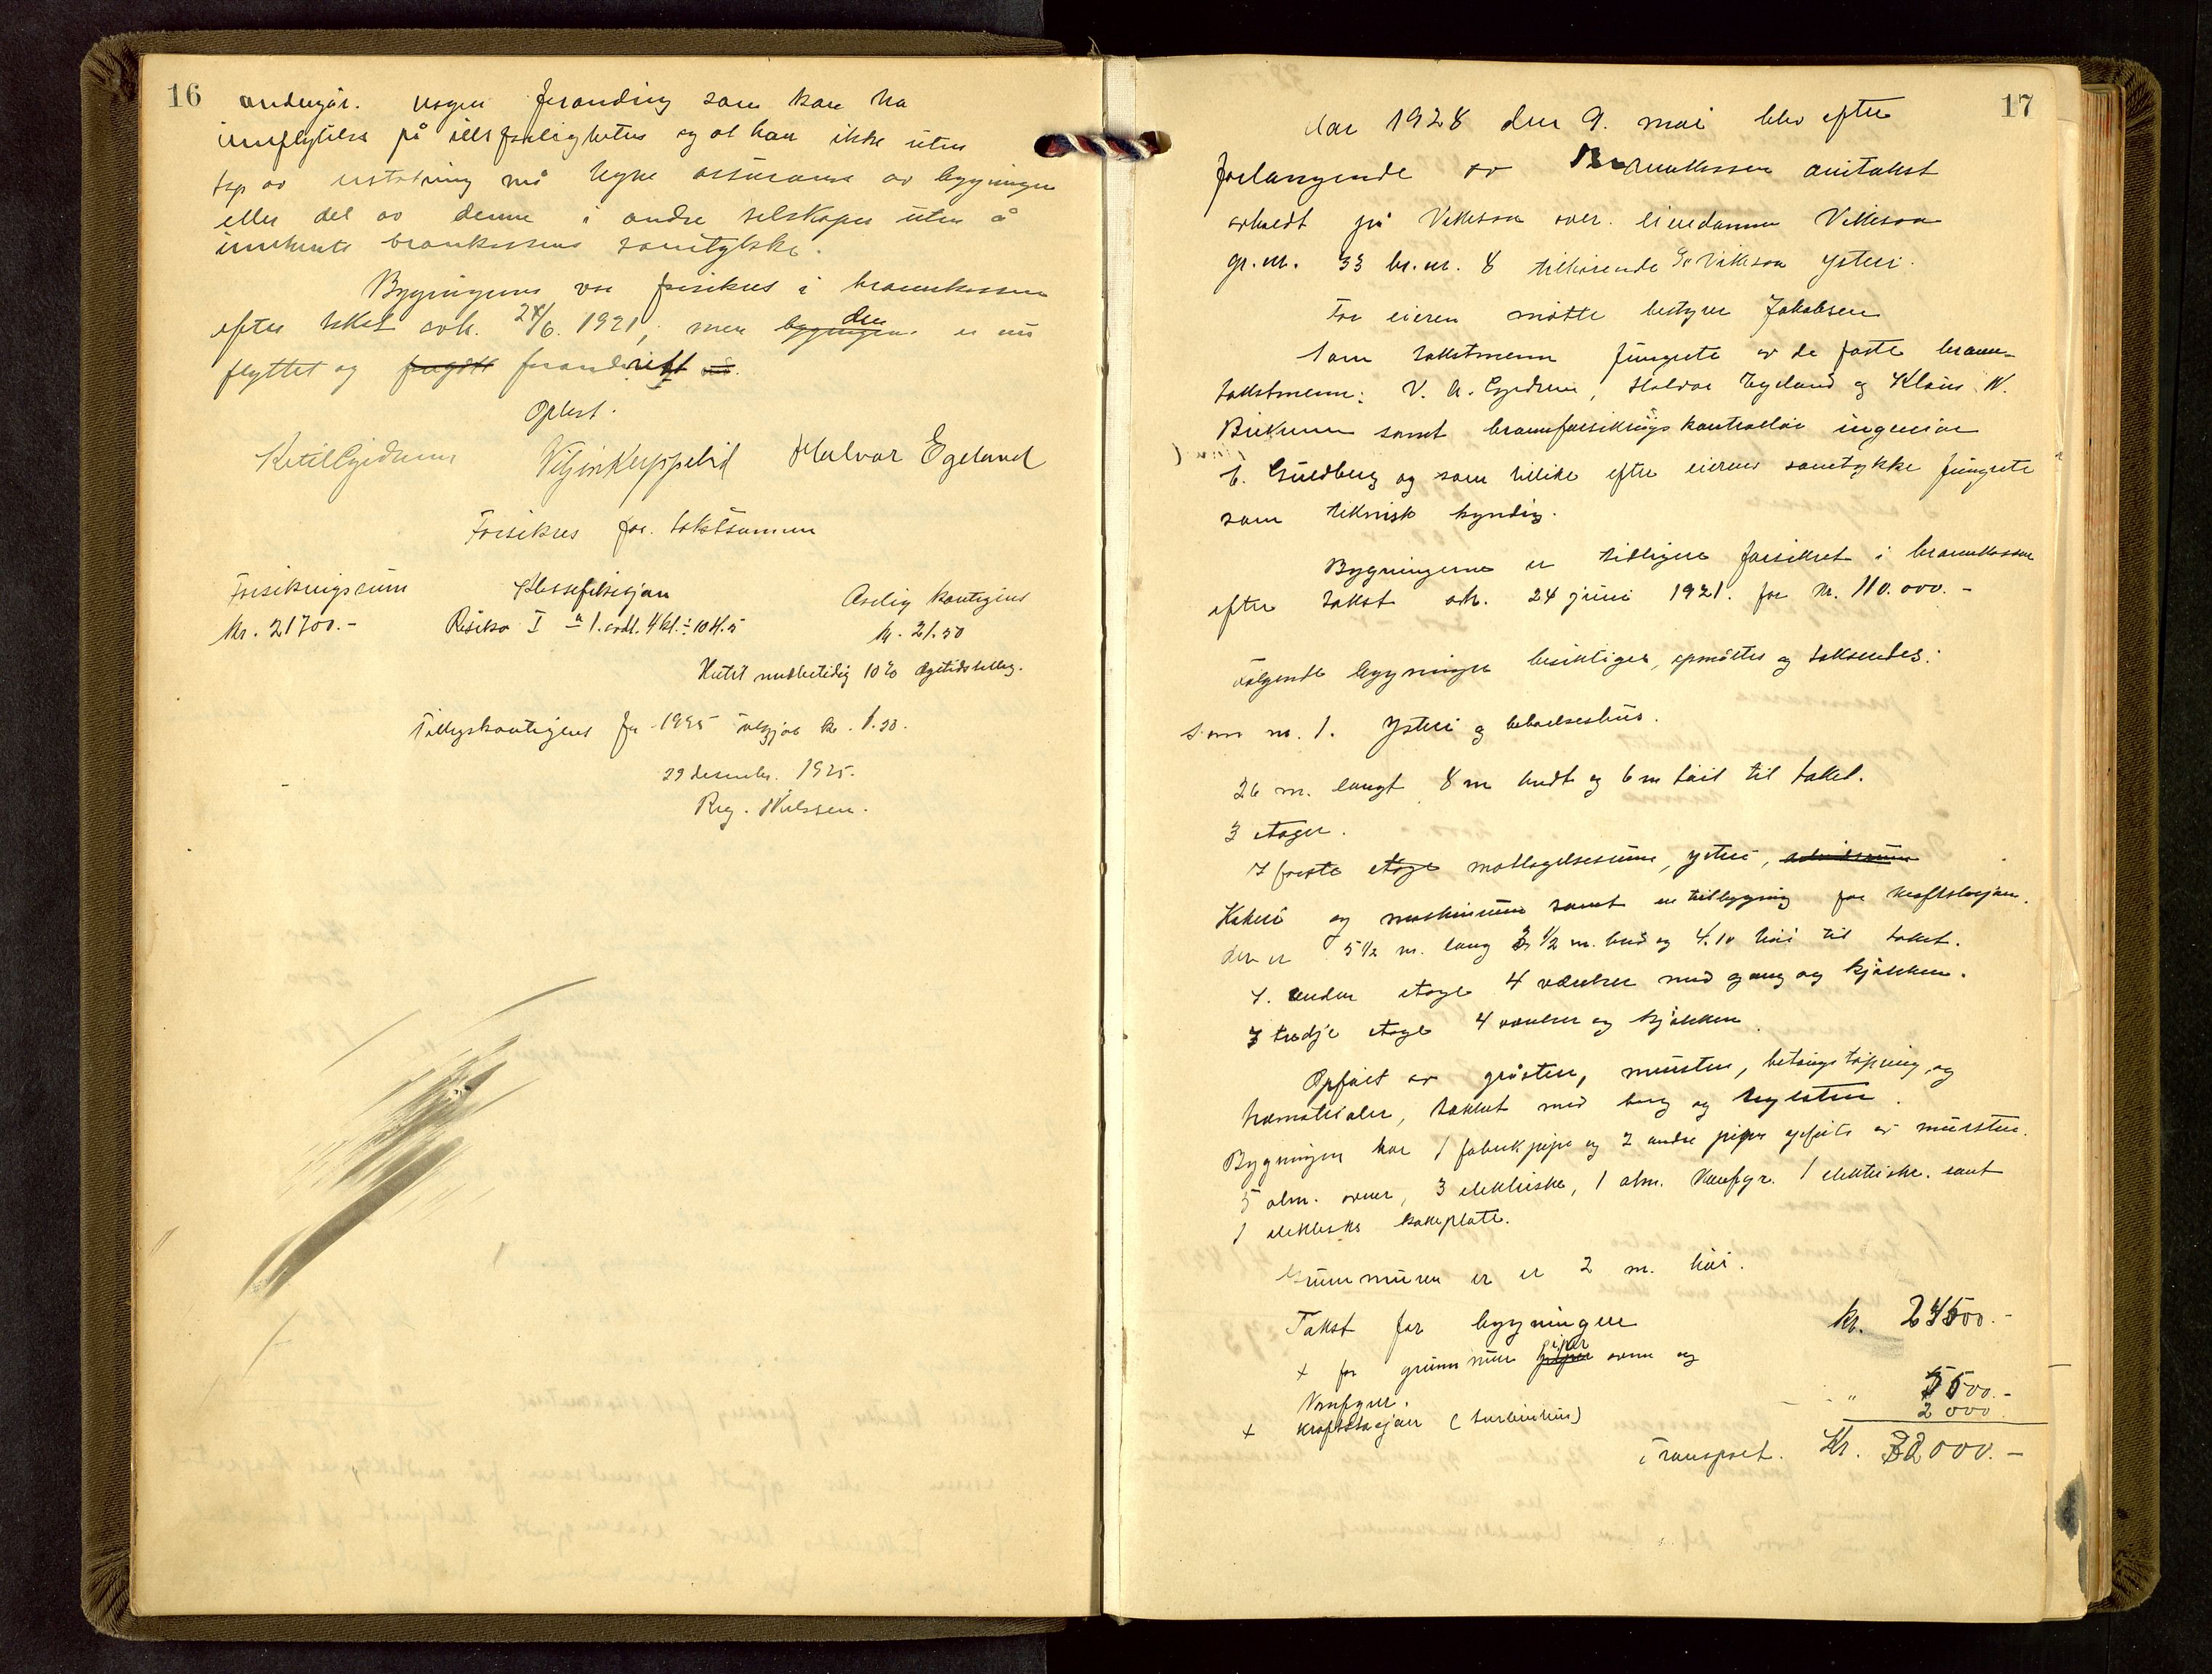 16
undergår. nogen forandring som kan ha
innflytelse på ildsfarligheten og at han ikke uten
tap av erstatning må tegne assuranse av bygningen
eller del av denne i andre selskaper uten å
innhente brankassens samtykke.
Bygningene var forsikret i brannkassen
efter takst avh. 24/6. 1921, men bygningene den er nu
flyttet og forandrett
Oplest.
Ketil Gjedrem Halvor Egeland
Forsikres for takstsummen
Forsikringssum Klassefikasjon Årlig kontigens
Kr. 21700.- Risiko I 1. avdl. 4 kl. ÷ 10 kl. 5 kr. 21.50
Heri medberegnet 10% tillegg.
Tilleggskontigens for 1925 utgjør kr. 1.50.
29 desember. 1925.
Reg. Nilssen.
17
Aar 1928 den 9. mai blev efter
forlangende av Brannkassen omtakst
avholdt på Vikeså over eiendommen Vikeså
gr.nr. 33 br.nr. 8 tilhørende Vikeså ysteri.
For eieren møtte bestyrer Jakobsen
Som takstmenn fungerte av de faste brann-
takstmenn: V. A. Gjedrem, Halvor Egeland og Klaus N.
samt brannforsikringskontrollør ingeniør
E. Guldberg og som tillike efter eierens samtykke fungerte
som teknisk kyndig.
Bygningerne er tidligere forsikret i brannkassen
efter takst avh. 24 juni 1921. for kr. 110.000.-
Følgende bygninger besiktiges, opmåltes og takseredes:
Som nr. 1. Ysteri og beboelseshus.
26 m. langt 8 m bredt og 6 m høit til taket.
3 etager.
I første etage mottagelsesrum, ysteri, arbeidsrum
Kokeri og maskinrum samt en tilbygning for kraftstasjon.
den er 5 1/2 m. lang 3 1/2 m. bred og 4.10 høi til taket.
I. anden etage 4 værelser med gang og kjøkken.
I tredje etage 4 værelser og kjøkken.
Opført av gråsten, mursten, betongstøpning og
træmaterialer, tækket med berg og teglsten.
Bygningen har 1 fabrikpipe og 2 andre piper opført av mursten.
5 alm. ovner, 3 elektriske, 1 alm. komfyr. 1 elektriske. samt
1 elektrisk kokeplate.
Grunnmuren er er 2 m. høi.
Takst for bygningen kr. 24500.-
+ for grunnmur piper piper ovne og
Komfyrer. " 5500.-
+ kraftstasjon (turbinhus) 2000
Transport. Kr. 32000.-